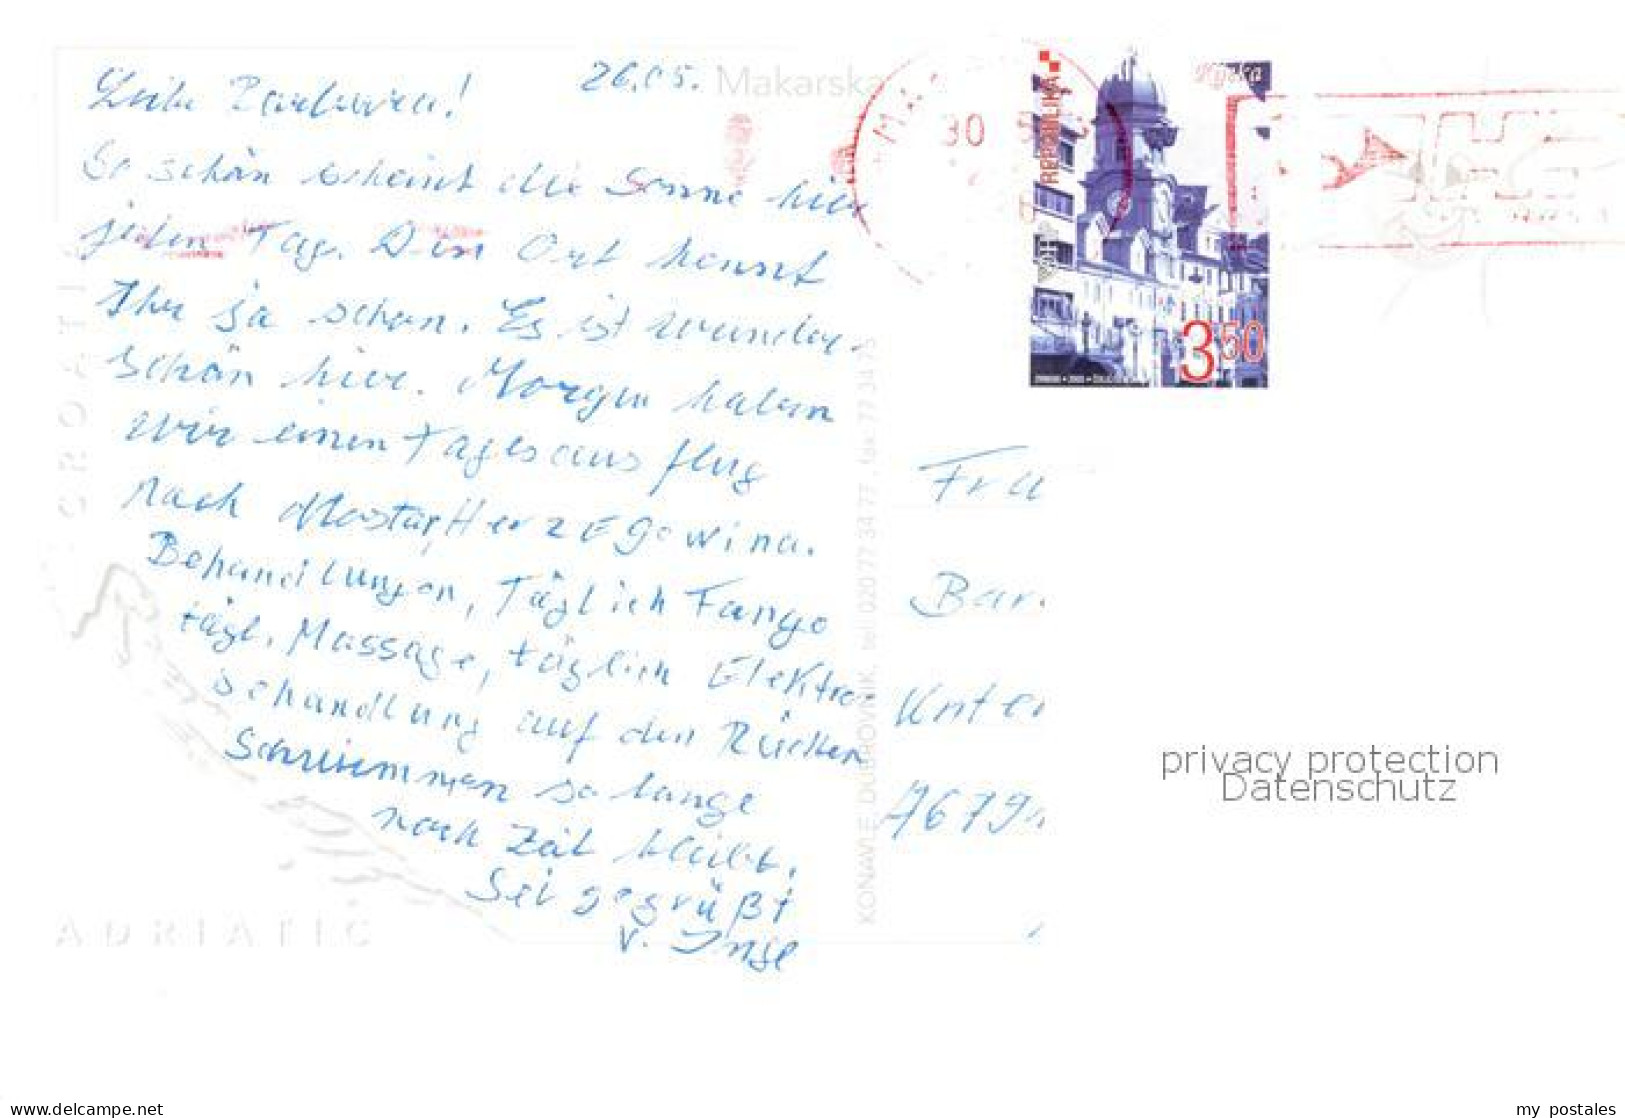 26.05. Makarska
Liebe Barbara!
So schön scheint die Sonne hier
jeden Tag. Den Ort kennt
Ihr ja schon. Es ist wunder-
schön hier. Morgen haben
wir einen Tagesausflug
nach Mostar, Herzegowina.
Behandlungen, Täglich Fango
tägl. Massage, täglich Elektro-
behandlung auf den Rücken
Schwimmen so lange
noch Zeit bleibt.
Sei gegrüßt
v. Inge
ADRIATIC
KONAVLE DUBROVNIK, tel: 020 77 34 77, fax: 77 34 75
REPUBLIKA
Rijeka
3,50
30
Frau
Bar
Unter
7679
privacy protection
Datenschutz
www.delcampe.net
my_postales